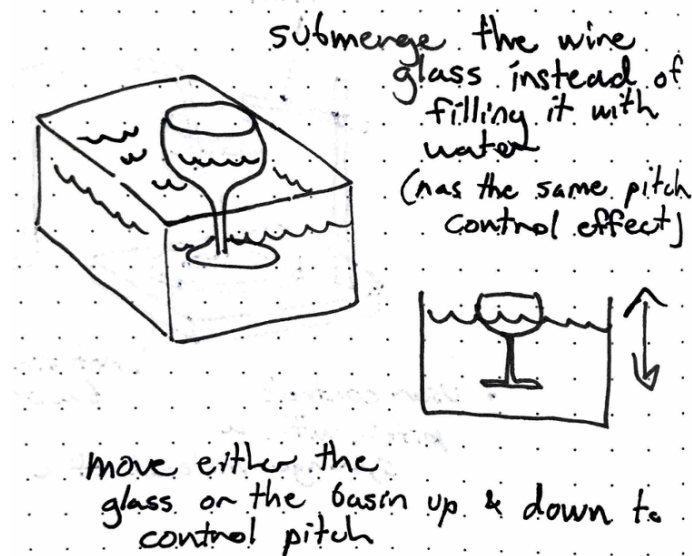 submerge the wine
glass instead of
filling it with
water
(has the same pitch
control effect)
move either the
glass or the basin up & down to
control pitch